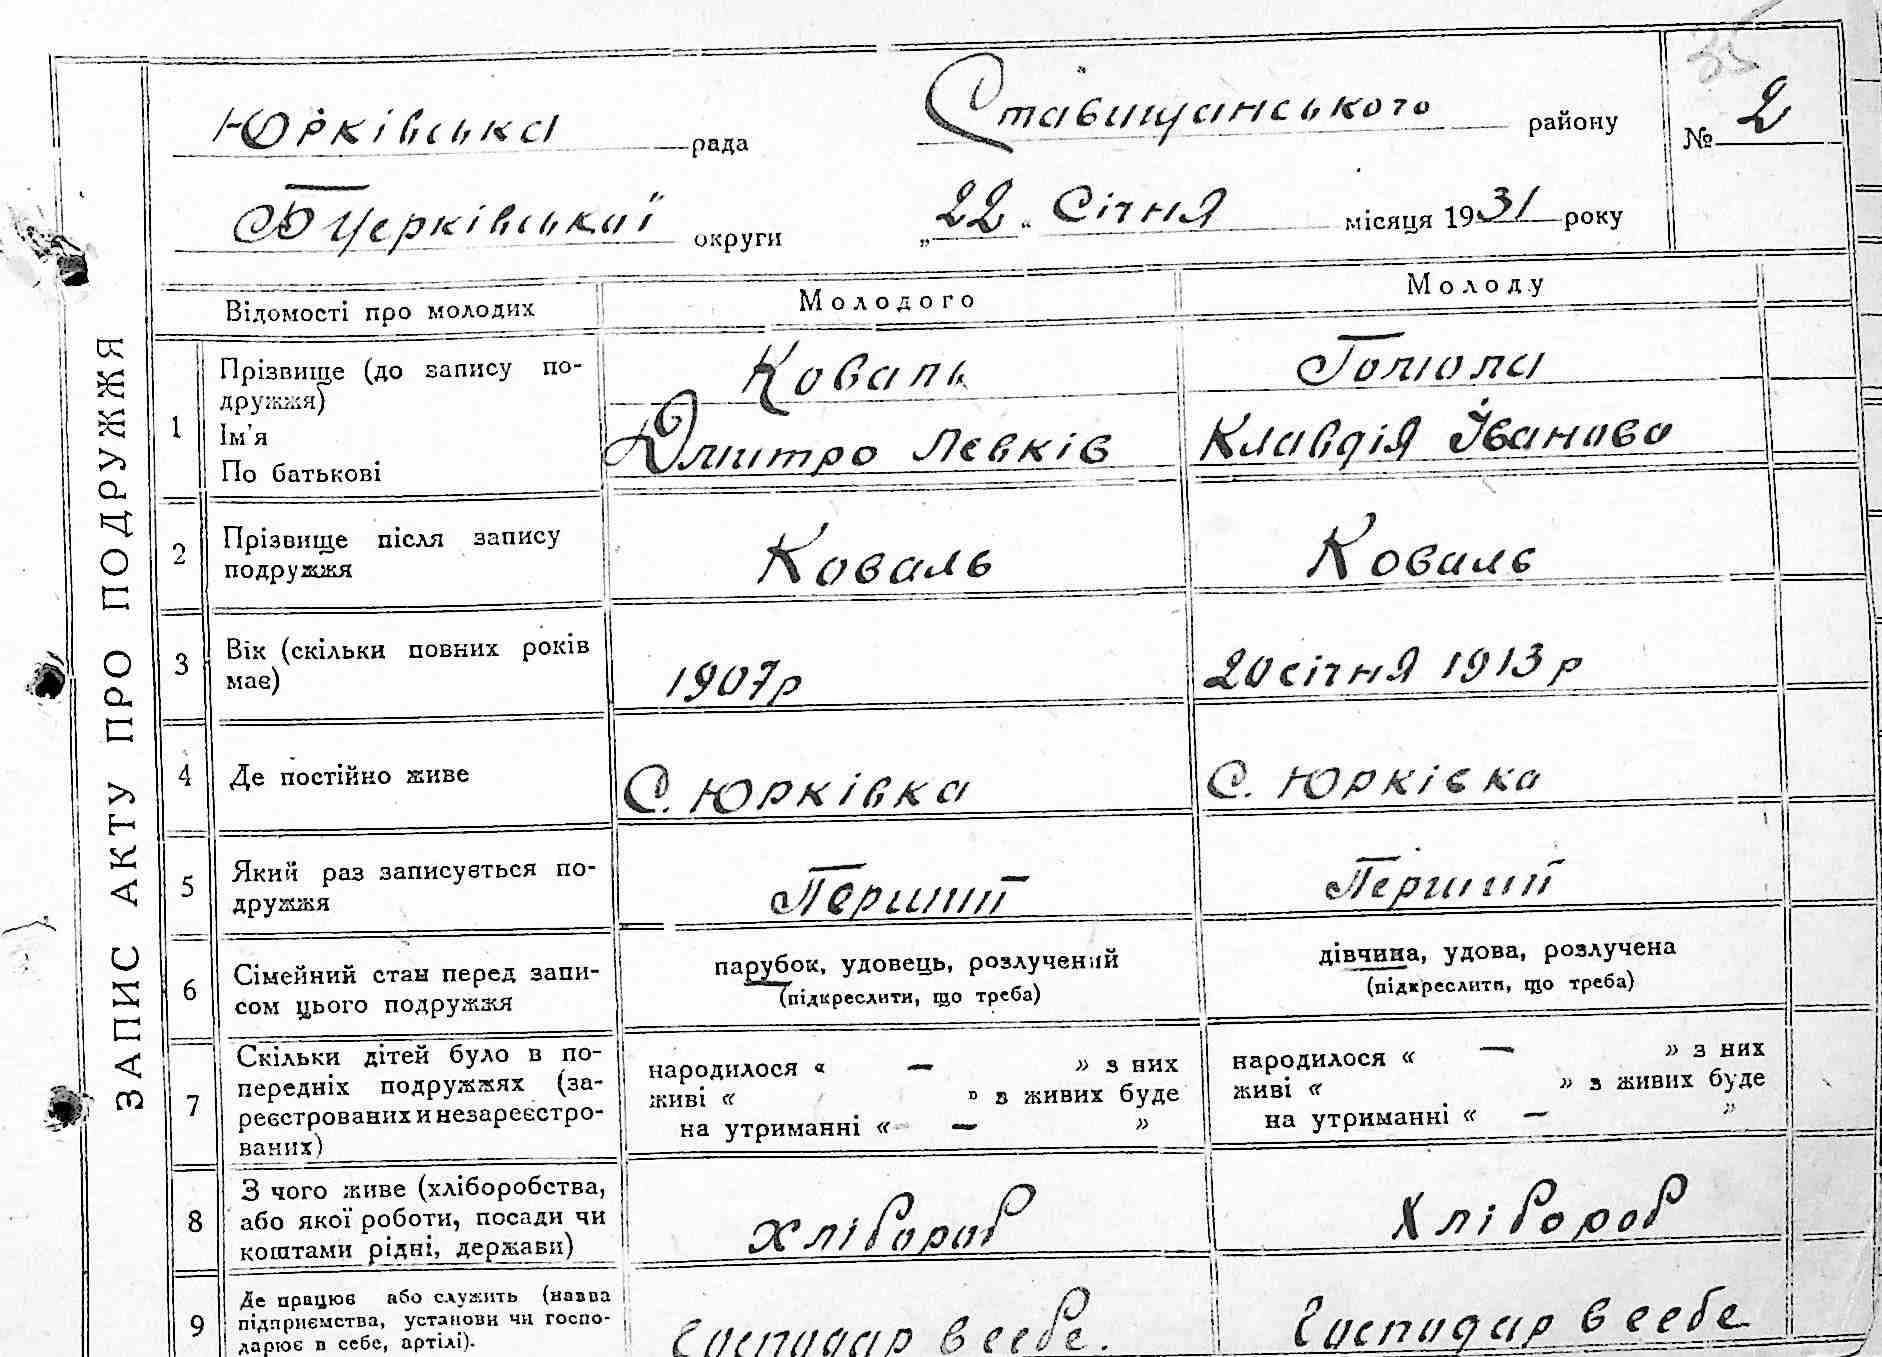 35
Юрківська рада Ставищанського району № 2
Бцерківської округи „22“ Січня місяця 1931 року
ЗАПИС АКТУ ПРО ПОДРУЖЖЯ
Відомості про молодих Молодого Молоду
1 Прізвище (до запису по-
дружжя) Коваль
Ім'я
По батькові Дмитро Левків Клавдія Іванова
2 Прізвище після запису
подружжя Коваль Коваль
3 Вік (скільки повних років
має) 1907р 20 січня 1913 р
4 Де постійно живе С. Юрківка С. Юрківка
5 Який раз записується по-
дружжя Перший Перший
6 Сімейний стан перед запи-
сом цього подружжя
парубок, удовець, розлучений дівчина, удова, розлучена
(підкреслити, що треба) (підкреслити, що треба)
7 Скільки дітей було в по-
передніх подружжях (за-
реєстрованих и незареєстро-
ваних)
народилося « — » з них народилося « — » з них
живі « » з живих буде живі « » з живих буде
на утриманні « — » на утриманні « — »
8 З чого живе (хліборобства,
або якої роботи, посади чи
коштами рідні, держави) хлібороб Хлібороб
9 Де працює або служить (назва
підприємства, установи чи госпо-
дарює в себе, артілі). Господар в себе. Господар в себе